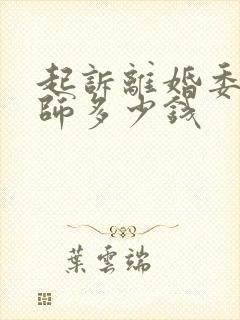 起訴離婚委
師多少錢
葉雲端